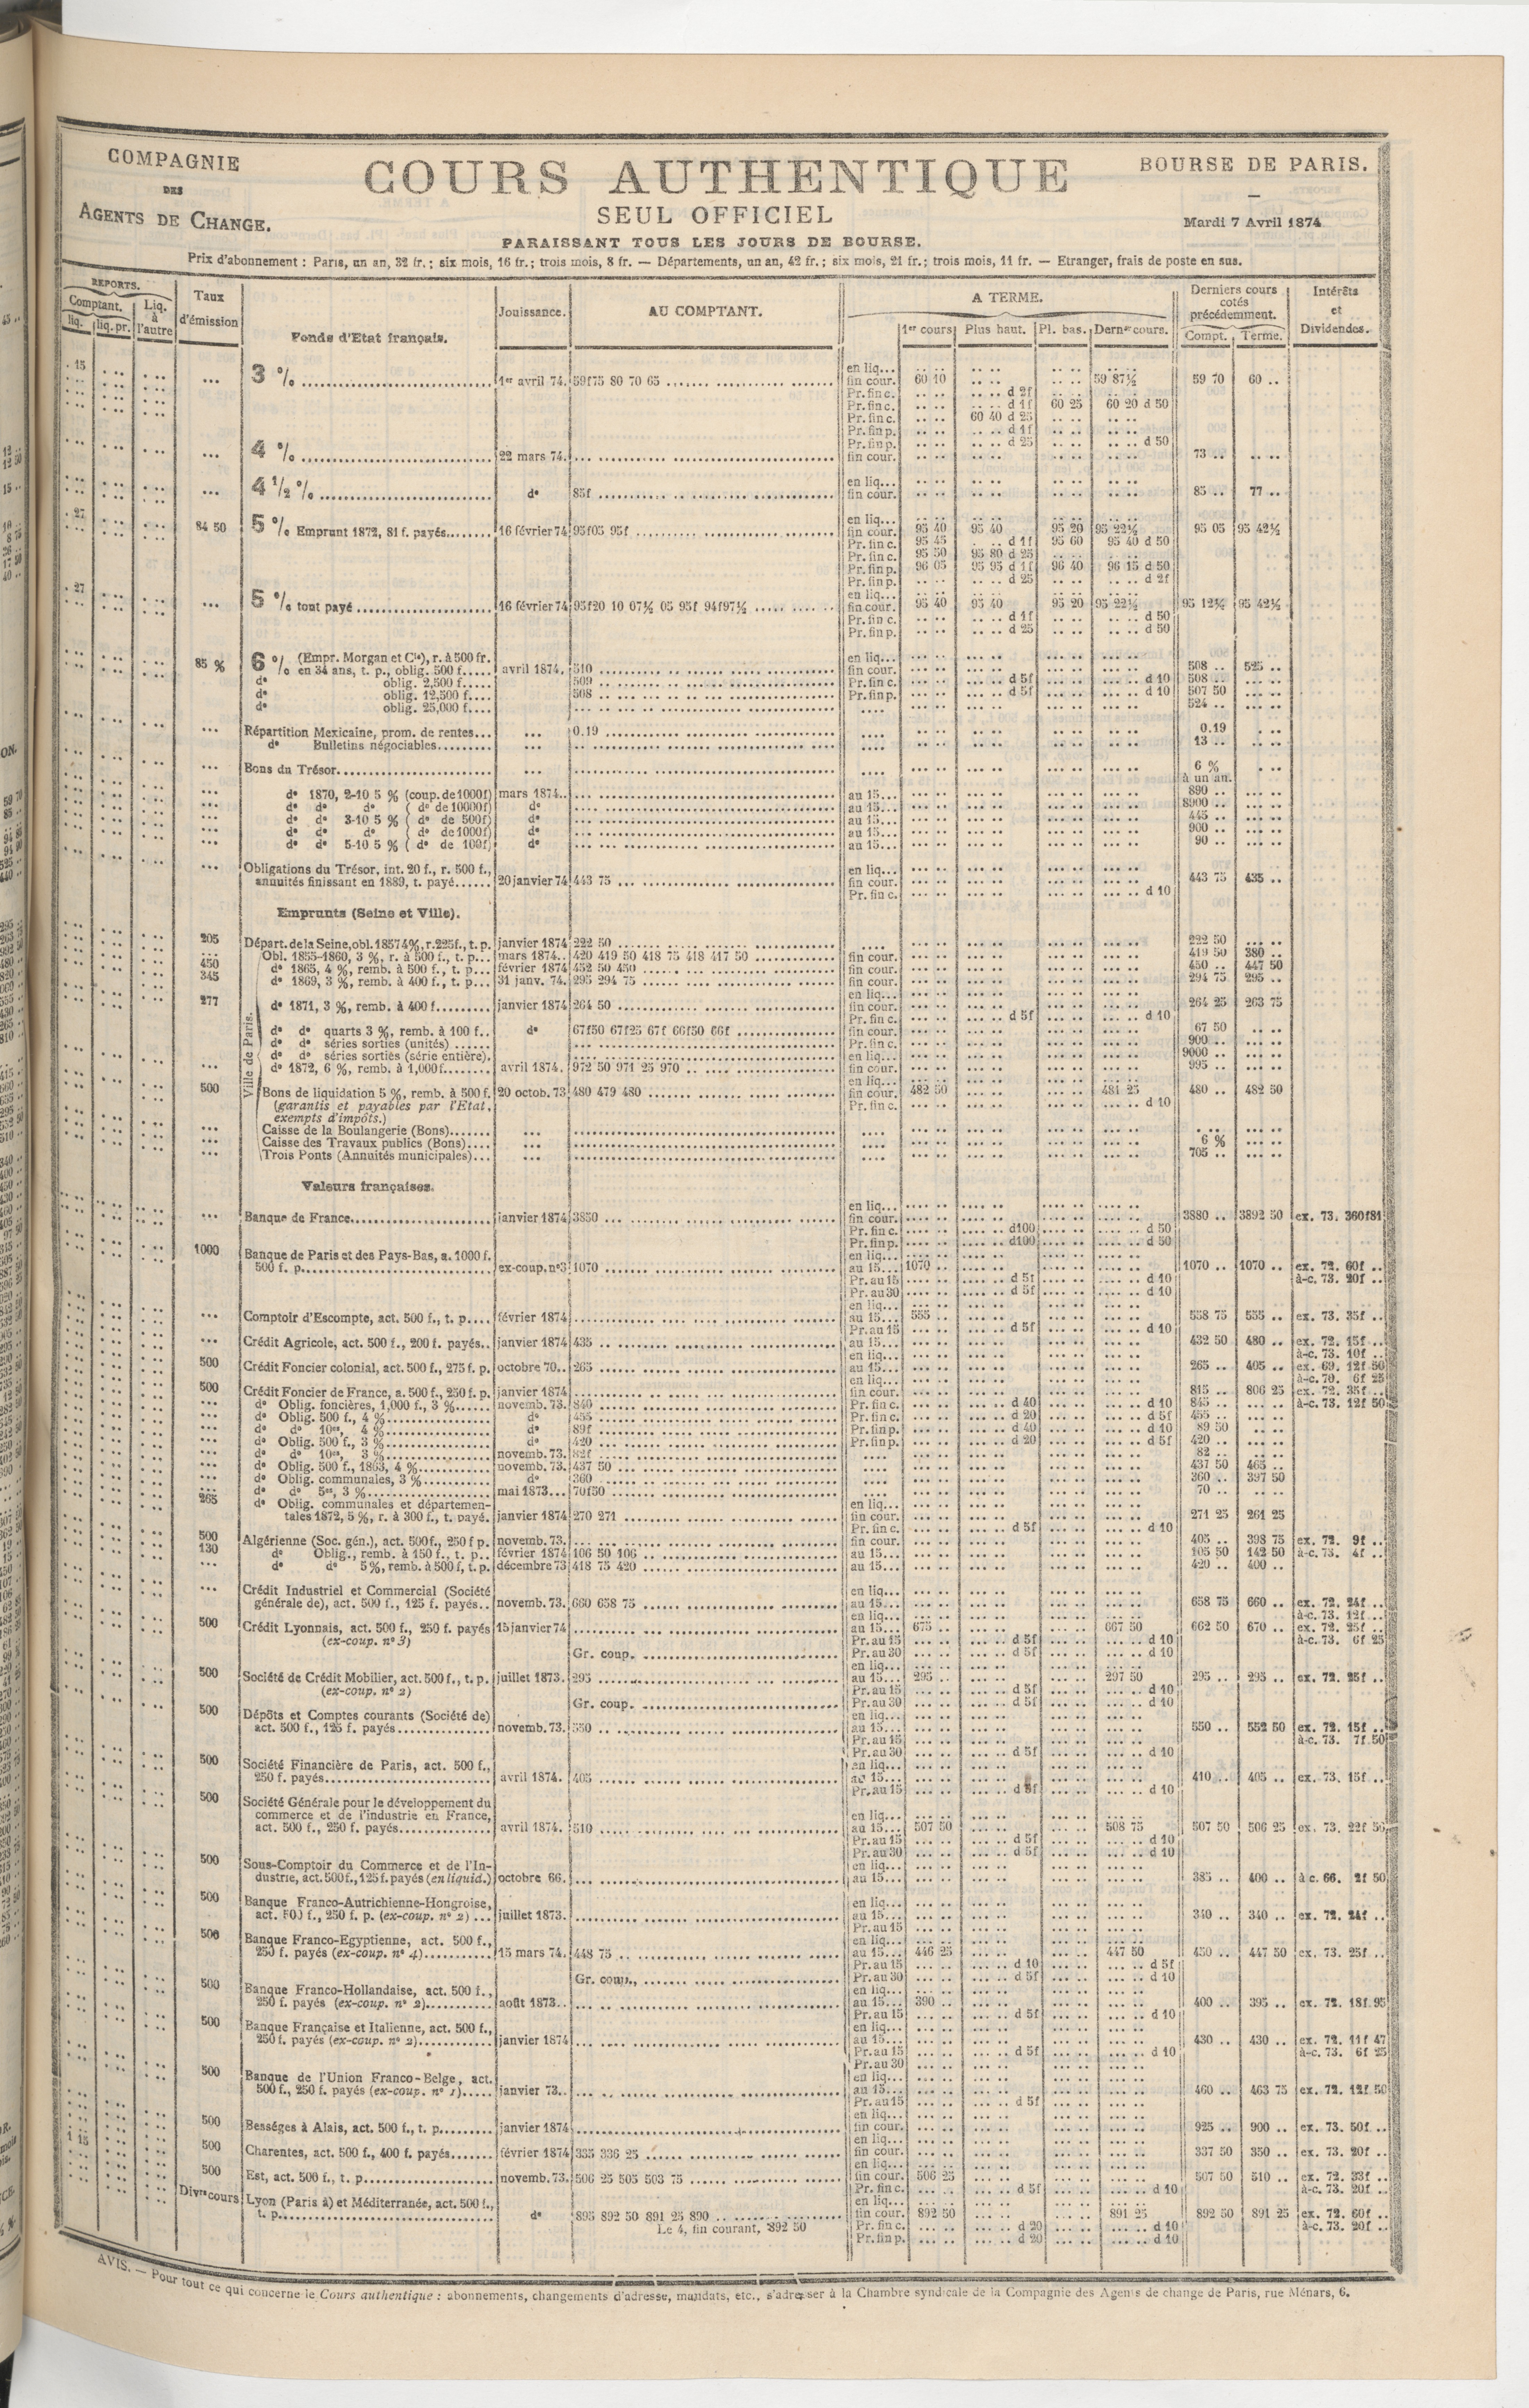 COMPAGNIE
DES
AGENTS DE CHANGE.
COURS AUTHENTIQUE
SEUL OFFICIEL
PARAISSANT TOUS LES JOURS DE BOURSE.
BOURSE DE PARIS.
Mardi 7 Avril 1874
Prix d'abonnement : Paris, un an, 32 fr.; six mois, 16 fr.; trois mois, 8 fr. — Départements, un an, 42 fr.; six mois, 21 fr.; trois mois, 11 fr. — Etranger, frais de poste en sus.
REPORTS.
Comptant. Liq. à l'autre
liq. liq. pr.
Taux d'émission
Jouissance.
AU COMPTANT.
A TERME.
1er cours Plus haut. Pl. bas. Dernier cours.
Derniers cours cotés précédemment.
Compt. Terme.
Intérêts et Dividendes.
Fonds d'Etat français.
3 % 1er avril 74. 59f75 80 70 65 en liq...
fin cour. 60 10 59 87½ 59 70 60 ..
Pr. fin c. d 2f
Pr. fin c. d 1f 60 25 60 20 d 50
Pr. fin c. 60 40 d 25
Pr. fin p. d 1f
Pr. fin p. d 25 d 50
4 % 22 mars 74. fin cour. 73 ..
en liq...
4 ½ % do 85f fin cour. 85 .. 77 ..
en liq...
84 50 5 % Emprunt 1872, 81 f. payés 16 février 74 95f05 95f fin cour. 95 40 95 40 95 20 95 22½ 95 05 95 42½
Pr. fin c. 95 45 d 1f 95 60 95 40 d 50
Pr. fin c. 95 50 95 80 d 25
Pr. fin p. 96 05 95 95 d 1f 96 40 96 15 d 50
Pr. fin p. d 25 d 2f
en liq...
5 % tout payé 16 février 74 95f20 10 07½ 05 95f 94f97½ fin cour. 95 40 95 40 95 20 95 22½ 95 12½ 95 42½
Pr. fin c. d 1f d 50
Pr. fin p. d 25 d 50
85 % 6 % (Empr. Morgan et Cie), r. à 500 fr. en liq...
en 34 ans, t. p., oblig. 500 f. avril 1874. 510 fin cour. 508 .. 525 ..
do oblig. 2,500 f. 509 Pr. fin c. d 5f d 10 508 ..
do oblig. 12,500 f. 508 Pr. fin p. d 5f d 10 507 50
do oblig. 25,000 f. 524 ..
Répartition Mexicaine, prom. de rentes... 0.19 0.19
do Bulletins négociables 13 ..
Bons du Trésor 6 % à un an.
do 1870, 2-10 5 % (coup. de 1000f) mars 1874.. au 15... 890 ..
do do do (do de 10000f) do au 15... 8900 ..
do do 3-10 5 % (do de 500f) do au 15... 445 ..
do do do (do de 1000f) do au 15... 900 ..
do do 5-10 5 % (do de 100f) do au 15... 90 ..
Obligations du Trésor, int. 20 f., r. 500 f., en liq...
annuités finissant en 1889, t. payé 20 janvier 74 443 75 fin cour. 443 75 435 ..
Pr. fin c. d 10
Emprunts (Seine et Ville).
205 Départ. de la Seine, obl. 1857 4%, r. 225f., t. p. janvier 1874 222 50 222 50
Ville de Paris.
Obl. 1855-1860, 3 %, r. à 500 f., t. p... mars 1874.. 420 419 50 418 75 418 417 50 fin cour. 419 50 380 ..
450 do 1865, 4 %, remb. à 500 f., t. p... février 1874 452 50 450 fin cour. 450 .. 447 50
345 do 1869, 3 %, remb. à 400 f., t. p... 31 janv. 74. 295 294 75 fin cour. 294 75 295 ..
en liq...
277 do 1871, 3 %, remb. à 400 f. janvier 1874 264 50 fin cour. 264 25 263 75
Pr. fin c. d 5f d 10
do do quarts 3 %, remb. à 100 f.. do 67f50 67f25 67f 66f50 66f fin cour. 67 50
do do séries sorties (unités) Pr. fin c. 900 ..
do do séries sorties (série entière). en liq... 9000 ..
do 1872, 6 %, remb. à 1,000 f. avril 1874. 972 50 971 25 970 fin cour. 995 ..
en liq...
500 Bons de liquidation 5 %, remb. à 500 f. 20 octob. 73 480 479 480 fin cour. 482 50 481 25 480 .. 482 50
(garantis et payables par l'Etat, Pr. fin c. d 10
exempts d'impôts.)
Caisse de la Boulangerie (Bons)
Caisse des Travaux publics (Bons) 6 %
Trois Ponts (Annuités municipales) 705 ..
Valeurs françaises.
en liq...
Banque de France janvier 1874 3850 fin cour. 3880 .. 3892 50 ex. 73. 360f81
Pr. fin c. d100 d 50
Pr. fin p. d100 d 50
1000 Banque de Paris et des Pays-Bas, a. 1000 f. en liq...
500 f. p. ex-coup. nº3 1070 au 15... 1070 1070 .. 1070 .. ex. 72. 60f ..
Pr. au 15 d 5f d 10 à-c. 73. 20f ..
Pr. au 30 d 5f d 10
en liq...
Comptoir d'Escompte, act. 500 f., t. p. février 1874 au 15... 555 558 75 555 .. ex. 73. 35f ..
Pr. au 15 d 5f d 10
Crédit Agricole, act. 500 f., 200 f. payés.. janvier 1874 435 au 15... 432 50 480 .. ex. 72. 15f ..
en liq... à-c. 73. 10f ..
500 Crédit Foncier colonial, act. 500 f., 275 f. p. octobre 70.. 265 au 15... 265 .. 405 .. ex. 69. 12f 50
en liq... à-c. 70. 6f 25
500 Crédit Foncier de France, a. 500 f., 250 f. p. janvier 1874 fin cour. 815 .. 806 25 ex. 72. 35f ..
do Oblig. foncières, 1,000 f., 3 % novemb. 73. 840 Pr. fin c. d 40 d 10 845 .. à-c. 73. 12f 50
do Oblig. 500 f., 4 % do 455 Pr. fin c. d 20 d 5f 455 ..
do do 10es, 4 % do 89f Pr. fin p. d 40 d 10 89 50
do Oblig. 500 f., 3 % do 420 Pr. fin p. d 20 d 5f 420 ..
do do 10es, 3 % novemb. 73. 82f 82 ..
do Oblig. 500 f., 1863, 4 % novemb. 73. 437 50 437 50 465 ..
do Oblig. communales, 3 % do 360 360 .. 397 50
do do 5es, 3 % mai 1873... 70f50 70 ..
265 do Oblig. communales et départemen- en liq...
tales 1872, 5 %, r. à 300 f., t. payé. janvier 1874 270 271 fin cour. 271 25 261 25
Pr. fin c. d 5f d 10
500 Algérienne (Soc. gén.), act. 500 f., 250 f p. novemb. 73. fin cour. 405 .. 398 75 ex. 72. 9f ..
130 do Oblig., remb. à 150 f., t. p. février 1874 106 50 106 au 15... 105 50 142 50 à-c. 73. 4f ..
do do 5 %, remb. à 500 f, t. p. décembre 73 418 75 420 au 15... 420 .. 400 ..
Crédit Industriel et Commercial (Société en liq...
générale de), act. 500 f., 125 f. payés.. novemb. 73. 660 658 75 au 15... 658 75 660 .. ex. 72. 24f ..
en liq... à-c. 73. 12f ..
500 Crédit Lyonnais, act. 500 f., 250 f. payés 15 janvier 74 au 15... 675 667 50 662 50 670 .. ex. 72. 25f ..
(ex-coup. nº 3) Pr. au 15 d 5f d 10 à-c. 73. 6f 25
Gr. coup. Pr. au 30 d 5f d 10
en liq...
500 Société de Crédit Mobilier, act. 500 f., t. p. juillet 1873. 295 au 15... 295 297 50 295 .. 295 .. ex. 72. 25f ..
(ex-coup. nº 2) Pr. au 15 d 5f d 10
Gr. coup. Pr. au 30 d 5f d 10
500 Dépôts et Comptes courants (Société de) en liq...
act. 500 f., 125 f. payés novemb. 73. 550 au 15... 550 .. 552 50 ex. 72. 15f ..
Pr. au 15 à-c. 73. 7f 50
Pr. au 30 d 5f d 10
500 Société Financière de Paris, act. 500 f., en liq...
250 f. payés avril 1874. 405 au 15... 410 .. 405 .. ex. 73. 15f ..
Pr. au 15 d 5f d 10
500 Société Générale pour le développement du
commerce et de l'industrie en France, en liq...
act. 500 f., 250 f. payés avril 1874. 510 au 15... 507 50 508 75 507 50 506 25 ex. 73. 22f 50
Pr. au 15 d 5f d 10
Pr. au 30 d 5f d 10
500 Sous-Comptoir du Commerce et de l'In- en liq...
dustrie, act. 500 f., 125 f. payés (en liquid.) octobre 66. au 15... 385 .. 400 .. à c. 66. 2f 50
500 Banque Franco-Autrichienne-Hongroise, en liq...
act. 500 f., 250 f. p. (ex-coup. nº 2) juillet 1873. au 15... 340 .. 340 .. ex. 72. 24f ..
Pr. au 15
500 Banque Franco-Egyptienne, act. 500 f., en liq...
250 f. payés (ex-coup. nº 4) 15 mars 74. 448 75 au 15... 446 25 447 50 450 .. 447 50 ex. 73. 25f ..
Pr. au 15 d 10 d 5f
Gr. coup., Pr. au 30 d 5f d 10
500 Banque Franco-Hollandaise, act. 500 f., en liq...
250 f. payés (ex-coup. nº 2) août 1873.. au 15... 390 400 .. 395 .. ex. 72. 18f 95
Pr. au 15 d 5f d 10
500 Banque Française et Italienne, act. 500 f., en liq...
250 f. payés (ex-coup. nº 2) janvier 1874 au 15... 430 .. 430 .. ex. 72. 11f 47
Pr. au 15 d 5f d 10 à-c. 73. 6f 25
Pr. au 30
500 Banque de l'Union Franco-Belge, act. en liq...
500 f., 250 f. payés (ex-coup. nº 1) janvier 73.. au 15... 460 .. 463 75 ex. 72. 12f 50
Pr. au 15 d 5f
en liq...
500 Bességes à Alais, act. 500 f., t. p. janvier 1874 fin cour. 925 .. 900 .. ex. 73. 50f ..
en liq...
500 Charentes, act. 500 f., 400 f. payés février 1874 335 336 25 fin cour. 337 50 350 .. ex. 73. 20f ..
en liq...
500 Est, act. 500 f., t. p. novemb. 73. 506 25 505 503 75 fin cour. 506 25 507 50 510 .. ex. 72. 33f ..
Pr. fin c. d 5f d 10 à-c. 73. 20f ..
Divrs cours Lyon (Paris à) et Méditerranée, act. 500 f., en liq...
t. p. do 895 892 50 891 25 890 fin cour. 892 50 891 25 892 50 891 25 ex. 72. 60f ..
Le 4, fin courant, 892 50 Pr. fin c. d 20 d 10 à-c. 73. 20f ..
Pr. fin p. d 20 d 10
AVIS. — Pour tout ce qui concerne le Cours authentique : abonnements, changements d'adresse, mandats, etc., s'adresser à la Chambre syndicale de la Compagnie des Agents de change de Paris, rue Ménars, 6.